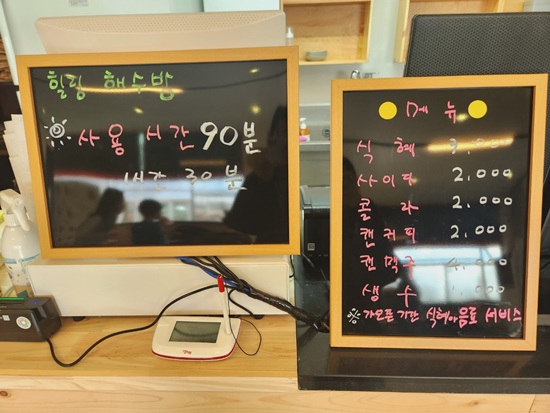 힐링 해수방
사용 시간 90분
1시간 30분
메 뉴
식 혜
사이다 2,000
콜 라 2,000
캔커피 2,000
캔맥주 4,000
생 수
※ 가오픈 기간 식혜아음료 서비스